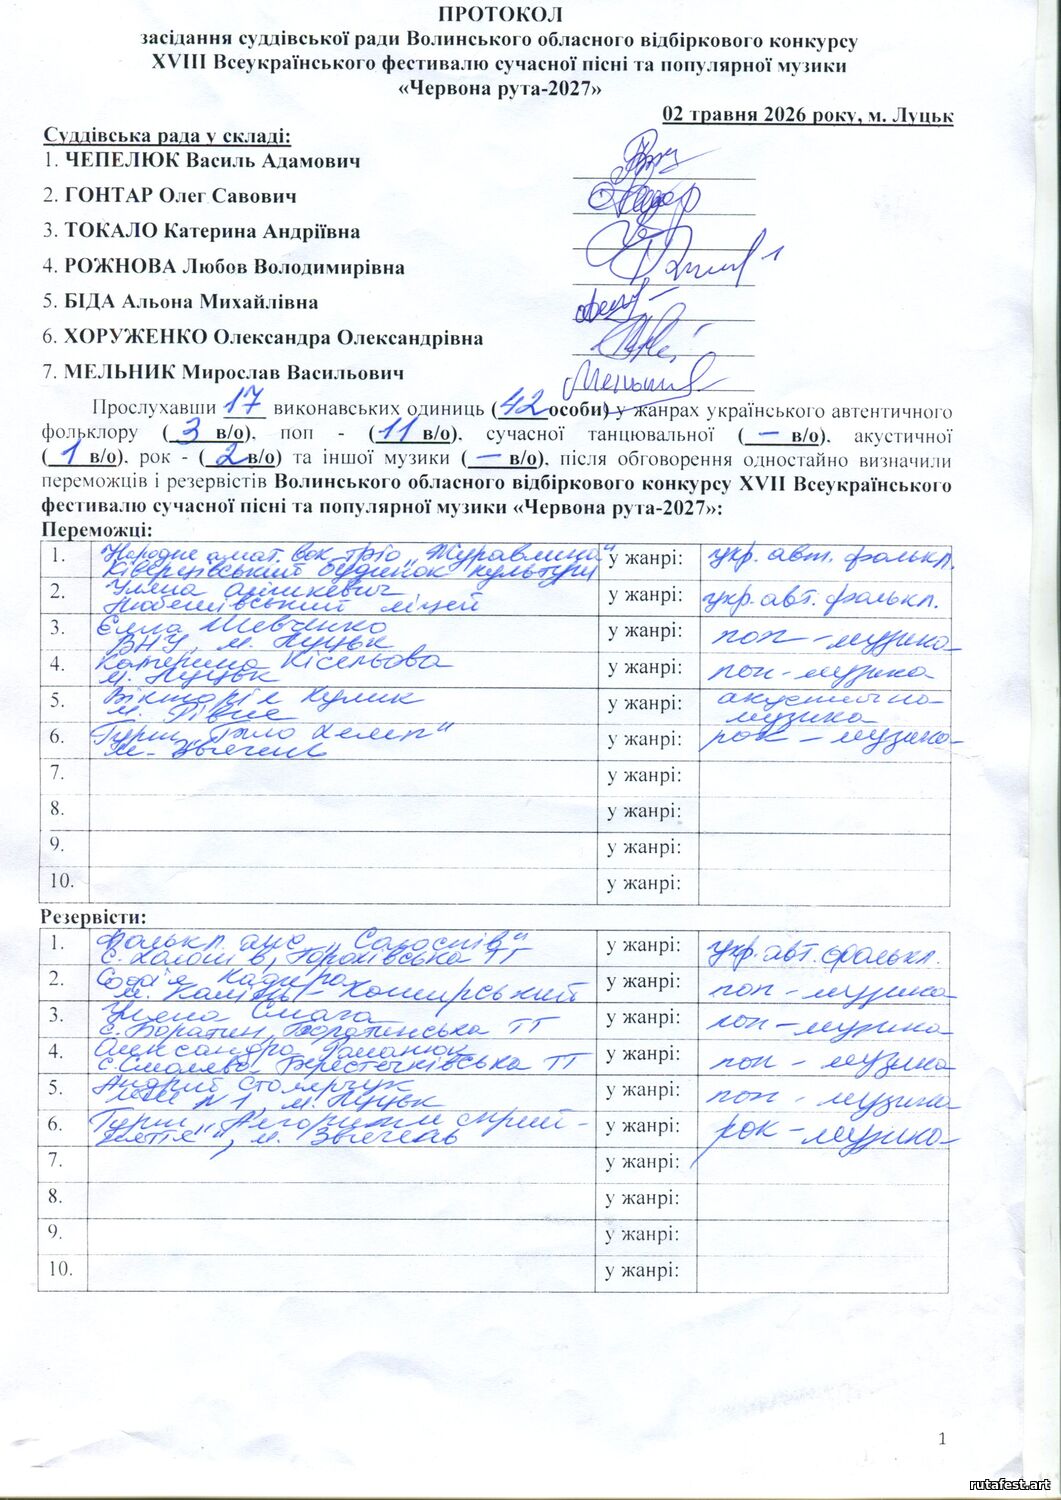 ПРОТОКОЛ
засідання суддівської ради Волинського обласного відбіркового конкурсу
XVIII Всеукраїнського фестивалю сучасної пісні та популярної музики
«Червона рута-2027»
02 травня 2026 року, м. Луцьк
Суддівська рада у складі:
1. ЧЕПЕЛЮК Василь Адамович
2. ГОНТАР Олег Савович
3. ТОКАЛО Катерина Андріївна
4. РОЖНОВА Любов Володимирівна
5. БІДА Альона Михайлівна
6. ХОРУЖЕНКО Олександра Олександрівна
7. МЕЛЬНИК Мирослав Васильович
Прослухавши 17 виконавських одиниць (42 особи) у жанрах українського автентичного
фольклору (3 в/о), поп - (11 в/о), сучасної танцювальної ( – в/о), акустичної
(1 в/о), рок - (2 в/о) та іншої музики ( – в/о), після обговорення одностайно визначили
переможців і резервістів Волинського обласного відбіркового конкурсу XVII Всеукраїнського
фестивалю сучасної пісні та популярної музики «Червона рута-2027»:
Переможці:
1. Народне амат. вок. тріо "Журавлина" у жанрі: укр. авт. фолькл.
Ківерцівський будинок культури
2. Уляна у жанрі: укр. авт. фолькл.
Любешівський ліцей
3. Єлна Шевченко у жанрі: поп - музика
ВНУ, м. Луцьк
4. Катерина Кісельова у жанрі: поп - музика
м. Луцьк
5. Вікторія Кулик у жанрі: акустична
м. Рівне музика
6. Гурт "Тіло у жанрі: рок - музика
м. Звягель
7. у жанрі:
8. у жанрі:
9. у жанрі:
10. у жанрі:
Резервісти:
1. Фолькл. анс. у жанрі: укр. авт. фолькл.
с. Холонів, Горохівська ТГ
2. Софія у жанрі: поп - музика
м. Камінь - Каширський
3. Уляна Смага у жанрі: поп - музика
с. Боратин, Боратинська ТГ
4. Олександра Романюк у жанрі: поп - музика
с. Смолява, Берестечківська ТГ
5. Андрій Столярчук у жанрі: поп - музика
№1 м. Луцьк
6. Гурт "Алгоритм сприй - у жанрі: рок - музика
няття", м. Звягель
7. у жанрі:
8. у жанрі:
9. у жанрі:
10. у жанрі:
1
rutafest.art